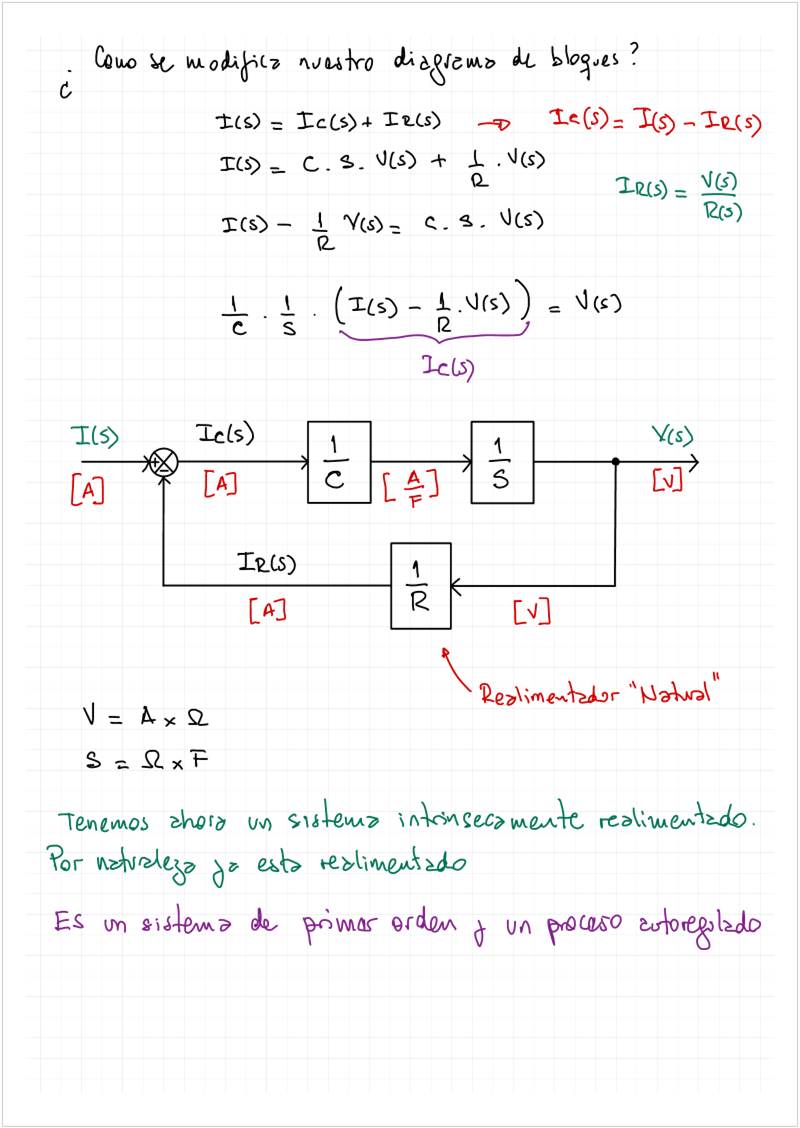 ¿ Como se modifica nuestro diagrama de bloques?
I(s) = Ic(s) + IR(s) → Ic(s) = I(s) - IR(s)
I(s) = C . s . V(s) + 1/R . V(s)
IR(s) = V(s)/R(s)
I(s) - 1/R V(s) = C . s . V(s)
1/C . 1/s . (I(s) - 1/R . V(s)) = V(s)
Ic(s)
I(s) Ic(s) 1/C 1/S V(s)
+ -
[A] [A] [A/F] [V]
IR(s) 1/R
[A] [V]
Realimentador "Natural"
V = A x Ω
s = Ω x F
Tenemos ahora un sistema intrinsecamente realimentado.
Por naturaleza ya esta realimentado
Es un sistema de primar orden y un proceso autoregulado